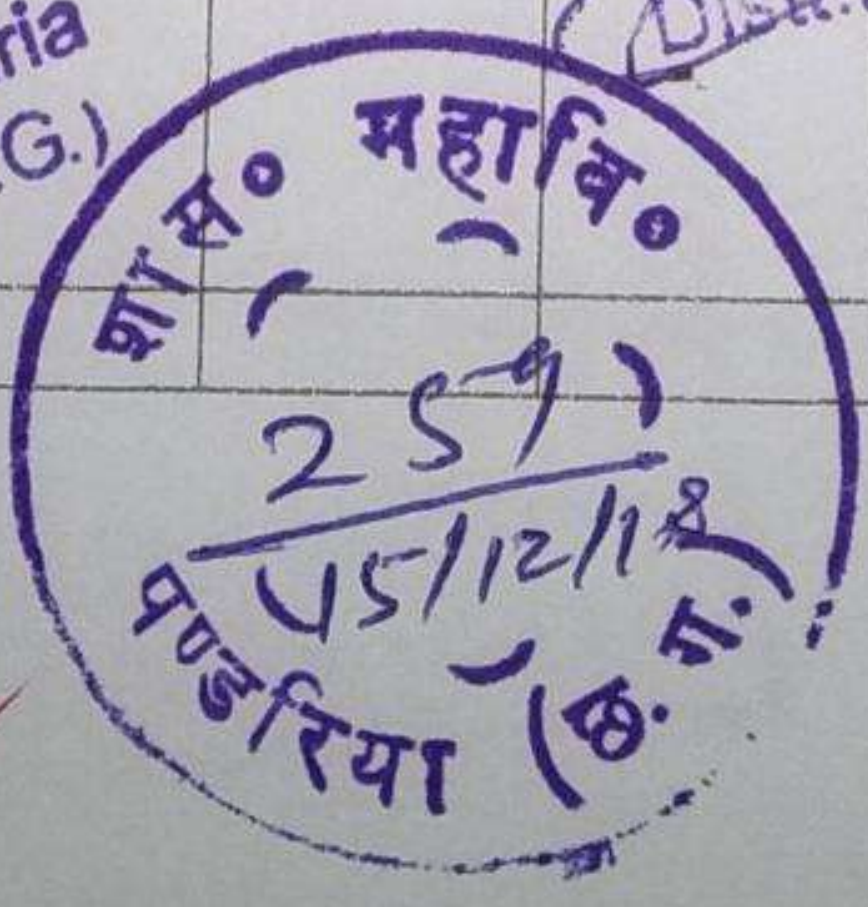 ria
G.)
शास० महावि०
259
15/12/18
पण्डरिया (छ. ग.)